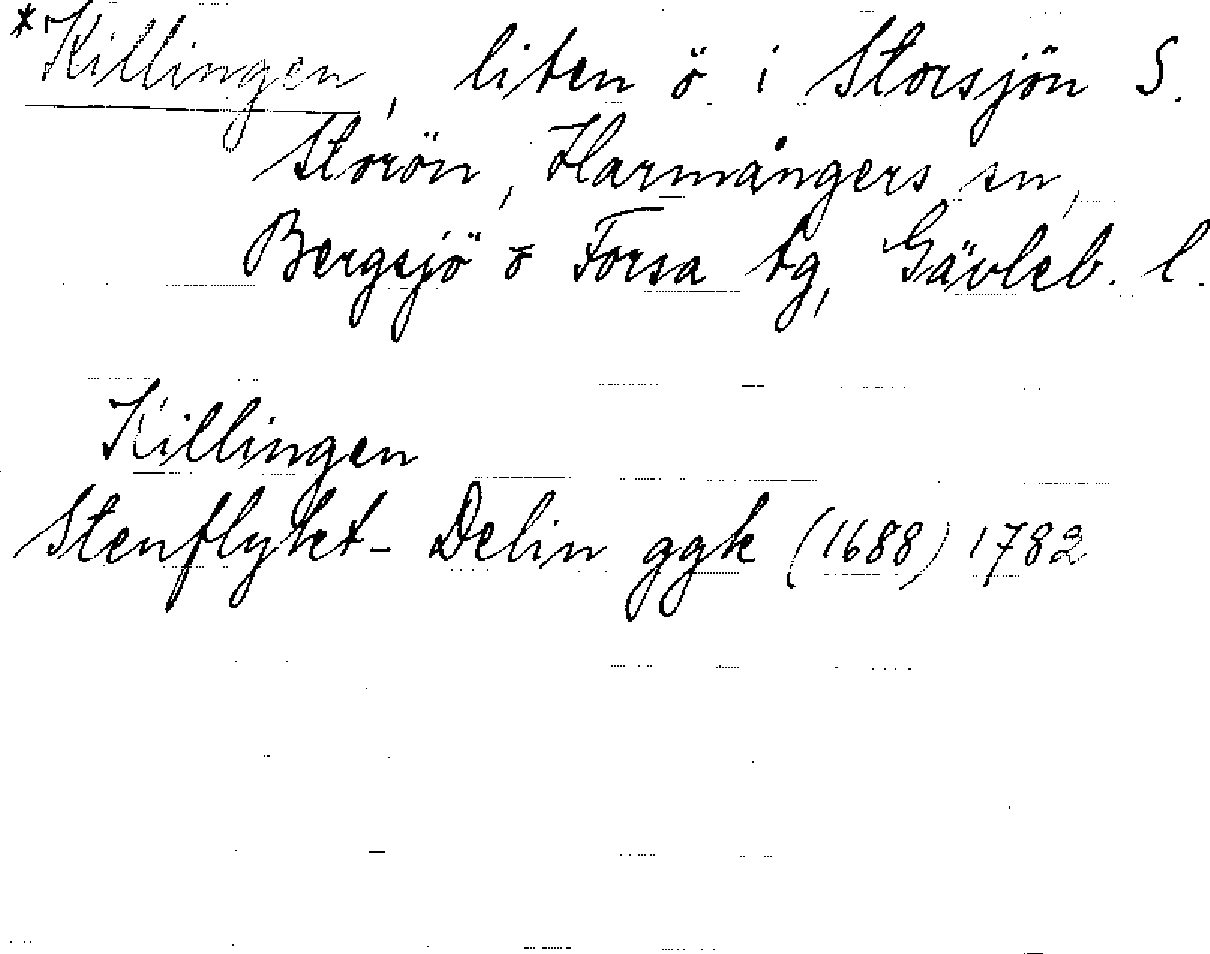 *Killingen, liten ö i Storsjön S.
Storön, Harmångers sn,
Bergsjö o Forsa tg, Gävleb. l.
Killingen
Stenflyket - Delin ggk (1688) 1782